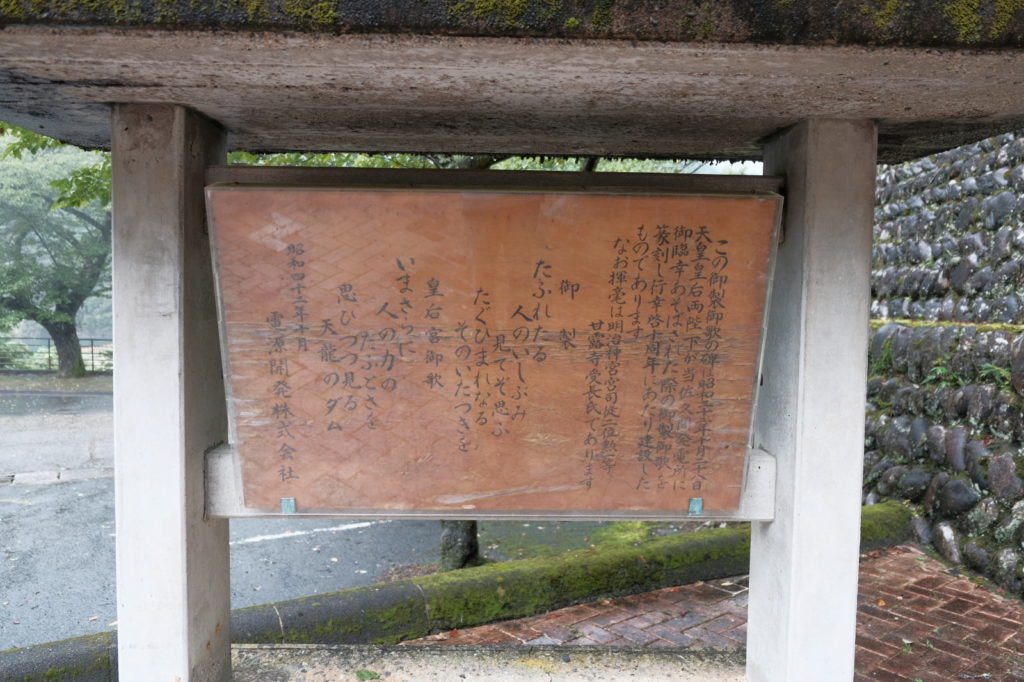 この御製御歌の碑は昭和三十二年十月二十八日
天皇皇后両陛下が当佐久間発電所に
御臨幸あそばされた際の御製御歌を
篆刻し行幸啓十周年にあたり建設した
ものであります
なお揮毫は明治神宮宮司従二位勲一等
甘露寺受長氏であります
御製
たふれたる
人のいしぶみ
見てぞ思ふ
たぐひまれなる
そのいたつきを
皇后宮御歌
いまさらに
人の力の
たふとさを
思ひつつ見る
天龍のダム
昭和四十二年十月
電源開発株式会社